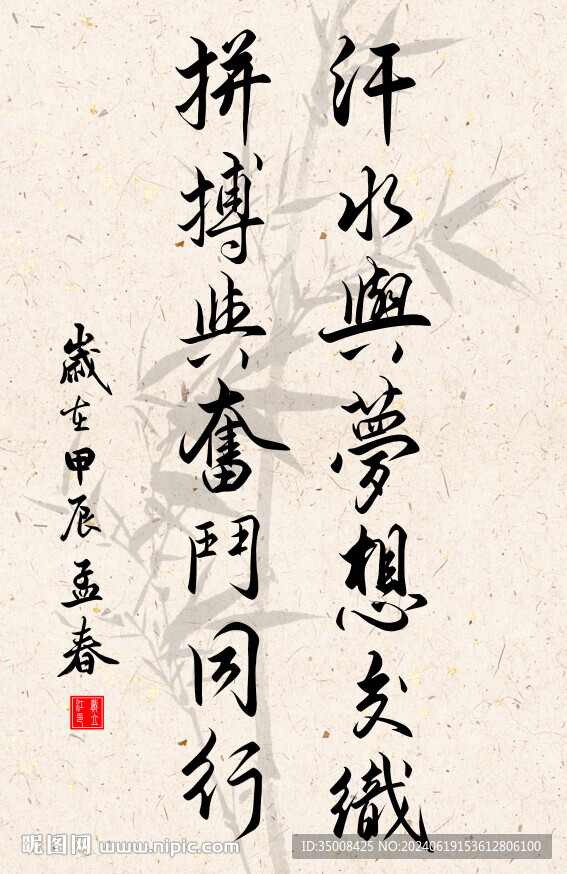 汗水與夢想交織
拼搏與奮鬥同行
歲在甲辰孟春
昵图网 www.nipic.com
ID:35008425 NO:20240619153612806100